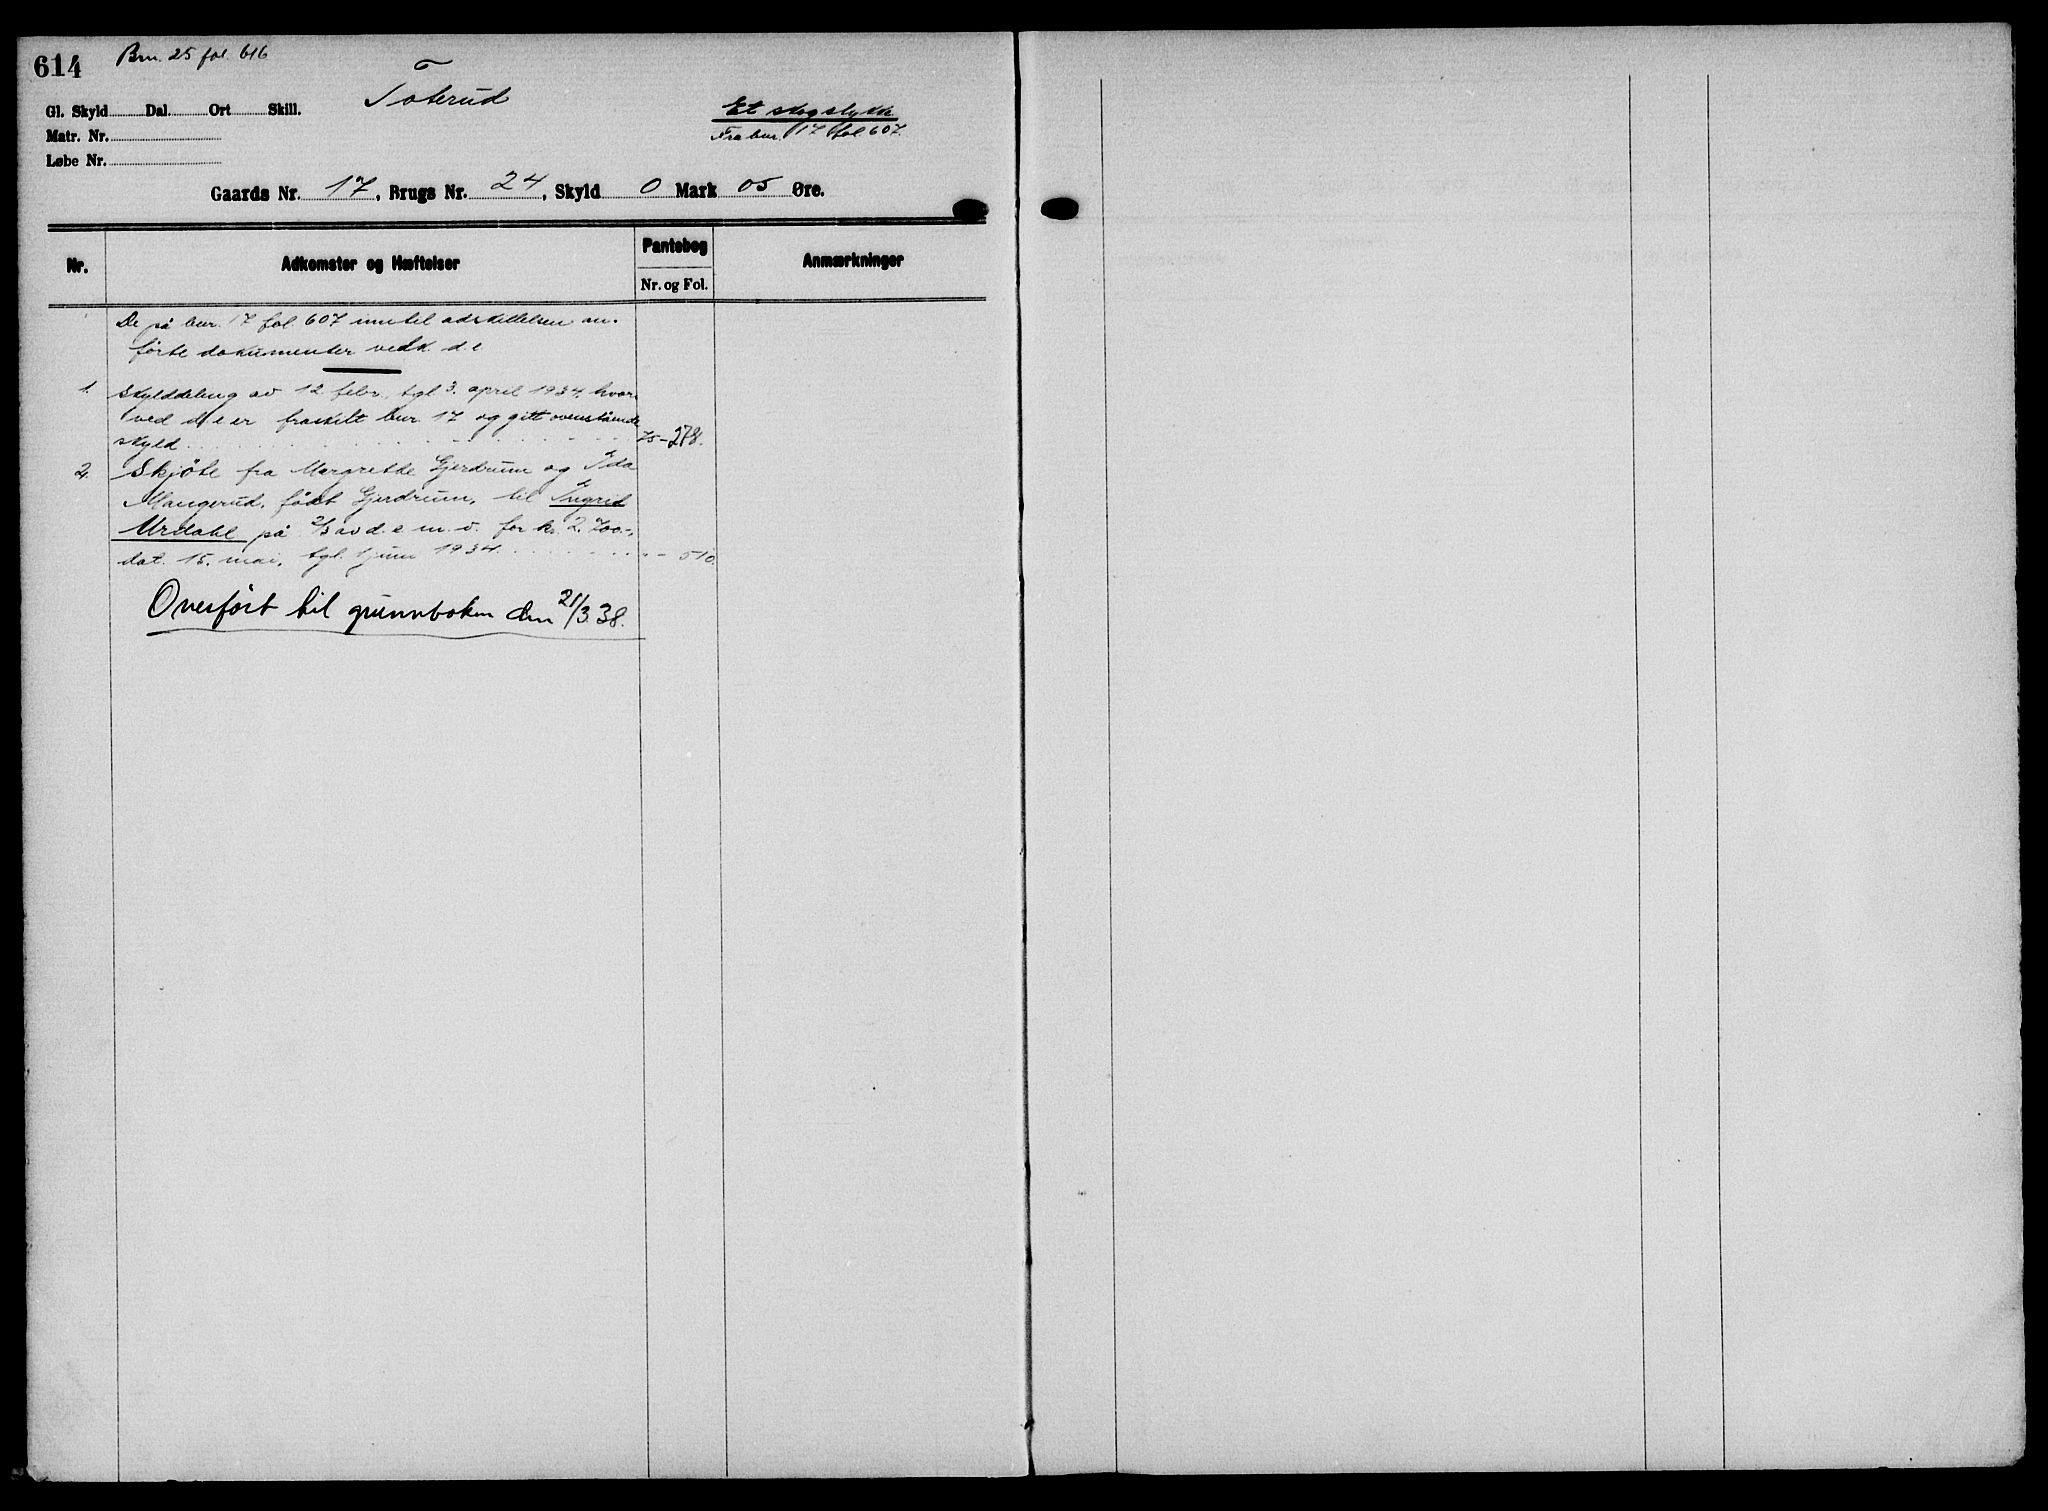 614 Brn. 25 fol. 616
Toterud
Gl. Skyld Dal. Ort Skill.
Matr. Nr.
Løbe Nr.
Et skogstykke
Fra bnr. 17 fol. 607.
Gaards Nr. 17, Brugs Nr. 24, Skyld 0 Mark 05 Øre.
Nr. Adkomster og Hæftelser Pantebog Anmærkninger
Nr. og Fol.
De på bnr. 17 fol. 607 inntil adskillelsen an-
førte dokumenter vedk. d.e.
1. Skylddeling av 12. febr., tgl. 3. april 1934, hvor-
ved d.e. er fraskilt bnr. 17 og gitt ovenstående
skyld 75 - 278.
2. Skjöte fra Margrethe Gjerdrum og Ida
Mangerud, født Gjerdrum, til Ingrid
Urdahl på 2/3 av d.e. m.v. for kr. 2.700.-,
dat. 15. mai, tgl. 1 juni 1934 " - 510.
Overført til grunnboken den 21/3.38.